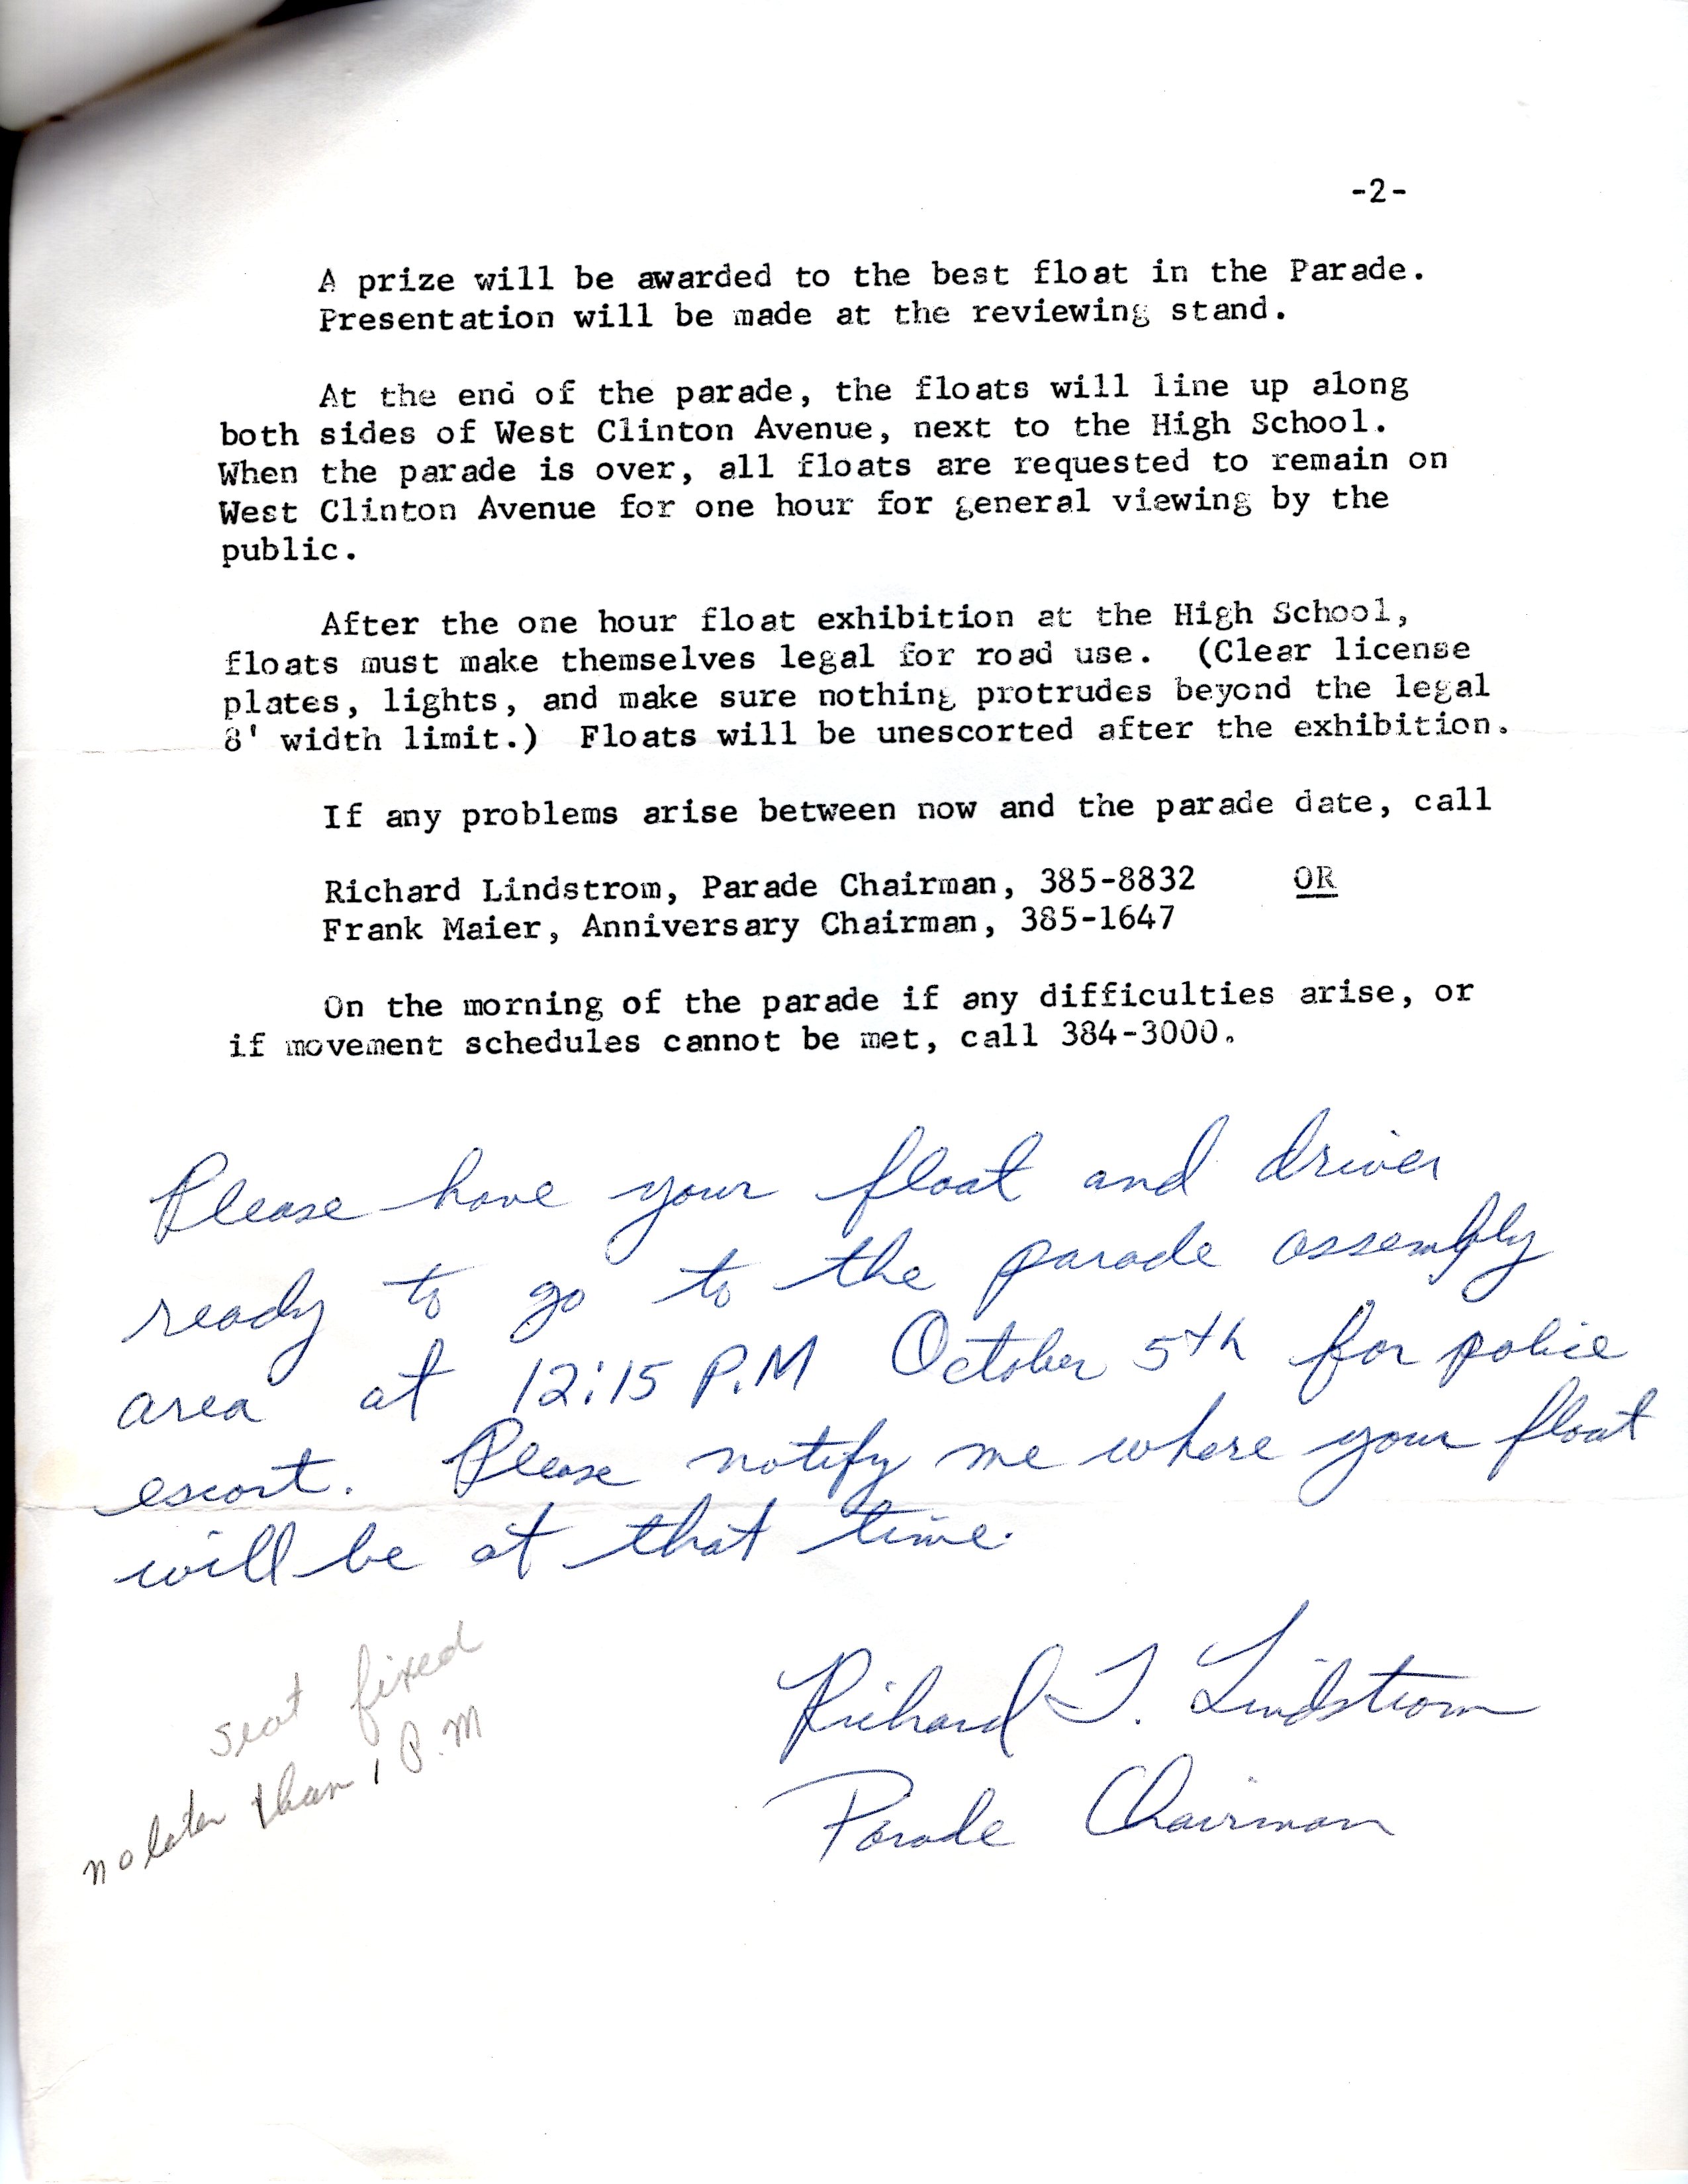 -2-
A prize will be awarded to the best float in the Parade.
Presentation will be made at the reviewing stand.
At the end of the parade, the floats will line up along
both sides of West Clinton Avenue, next to the High School.
When the parade is over, all floats are requested to remain on
West Clinton Avenue for one hour for general viewing by the
public.
After the one hour float exhibition at the High School,
floats must make themselves legal for road use. (Clear license
plates, lights, and make sure nothing protrudes beyond the legal
8' width limit.) Floats will be unescorted after the exhibition.
If any problems arise between now and the parade date, call
Richard Lindstrom, Parade Chairman, 385-8832 OR
Frank Maier, Anniversary Chairman, 385-1647
On the morning of the parade if any difficulties arise, or
if movement schedules cannot be met, call 384-3000.
Please have your float and driver
ready to go to the parade assembly
area at 12:15 P.M October 5th for police
escort. Please notify me where your float
will be at that time.
Richard T. Lindstrom
Parade Chairman
seat fixed
no later than 1 P.M